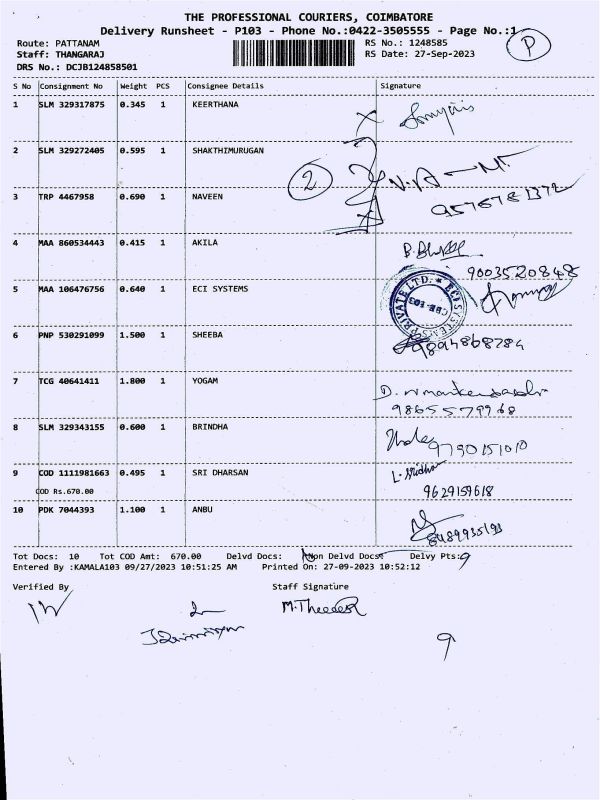 THE PROFESSIONAL COURIERS, COIMBATORE
Delivery Runsheet - P103 - Phone No.:0422-3505555 - Page No.:1
P
Route: PATTANAM RS No.: 1248585
Staff: THANGARAJ RS Date: 27-Sep-2023
DRS No.: DCJB124858501
S No Consignment No Weight PCS Consignee Details Signature
1 SLM 329317875 0.345 1 KEERTHANA
2 SLM 329272405 0.595 1 SHAKTHIMURUGAN
2
3 TRP 4467958 0.690 1 NAVEEN
4 MAA 860534443 0.415 1 AKILA
9003520848
5 MAA 106476756 0.640 1 ECI SYSTEMS
ECI SYSTEMS PRIVATE LTD.
6 PNP 530291099 1.500 1 SHEEBA
9894868784
7 TCG 40641411 1.800 1 YOGAM
9865579968
8 SLM 329343155 0.600 1 BRINDHA
9790151010
9 COD 1111981663 0.495 1 SRI DHARSAN L. Sridhar
COD Rs.670.00 9629159618
10 PDK 7044393 1.100 1 ANBU
8489935193
Tot Docs: 10 Tot COD Amt: 670.00 Delvd Docs: Non Delvd Docs: Delvy Pts:9
Entered By :KAMALA103 09/27/2023 10:51:25 AM Printed On: 27-09-2023 10:52:12
Verified By Staff Signature
9